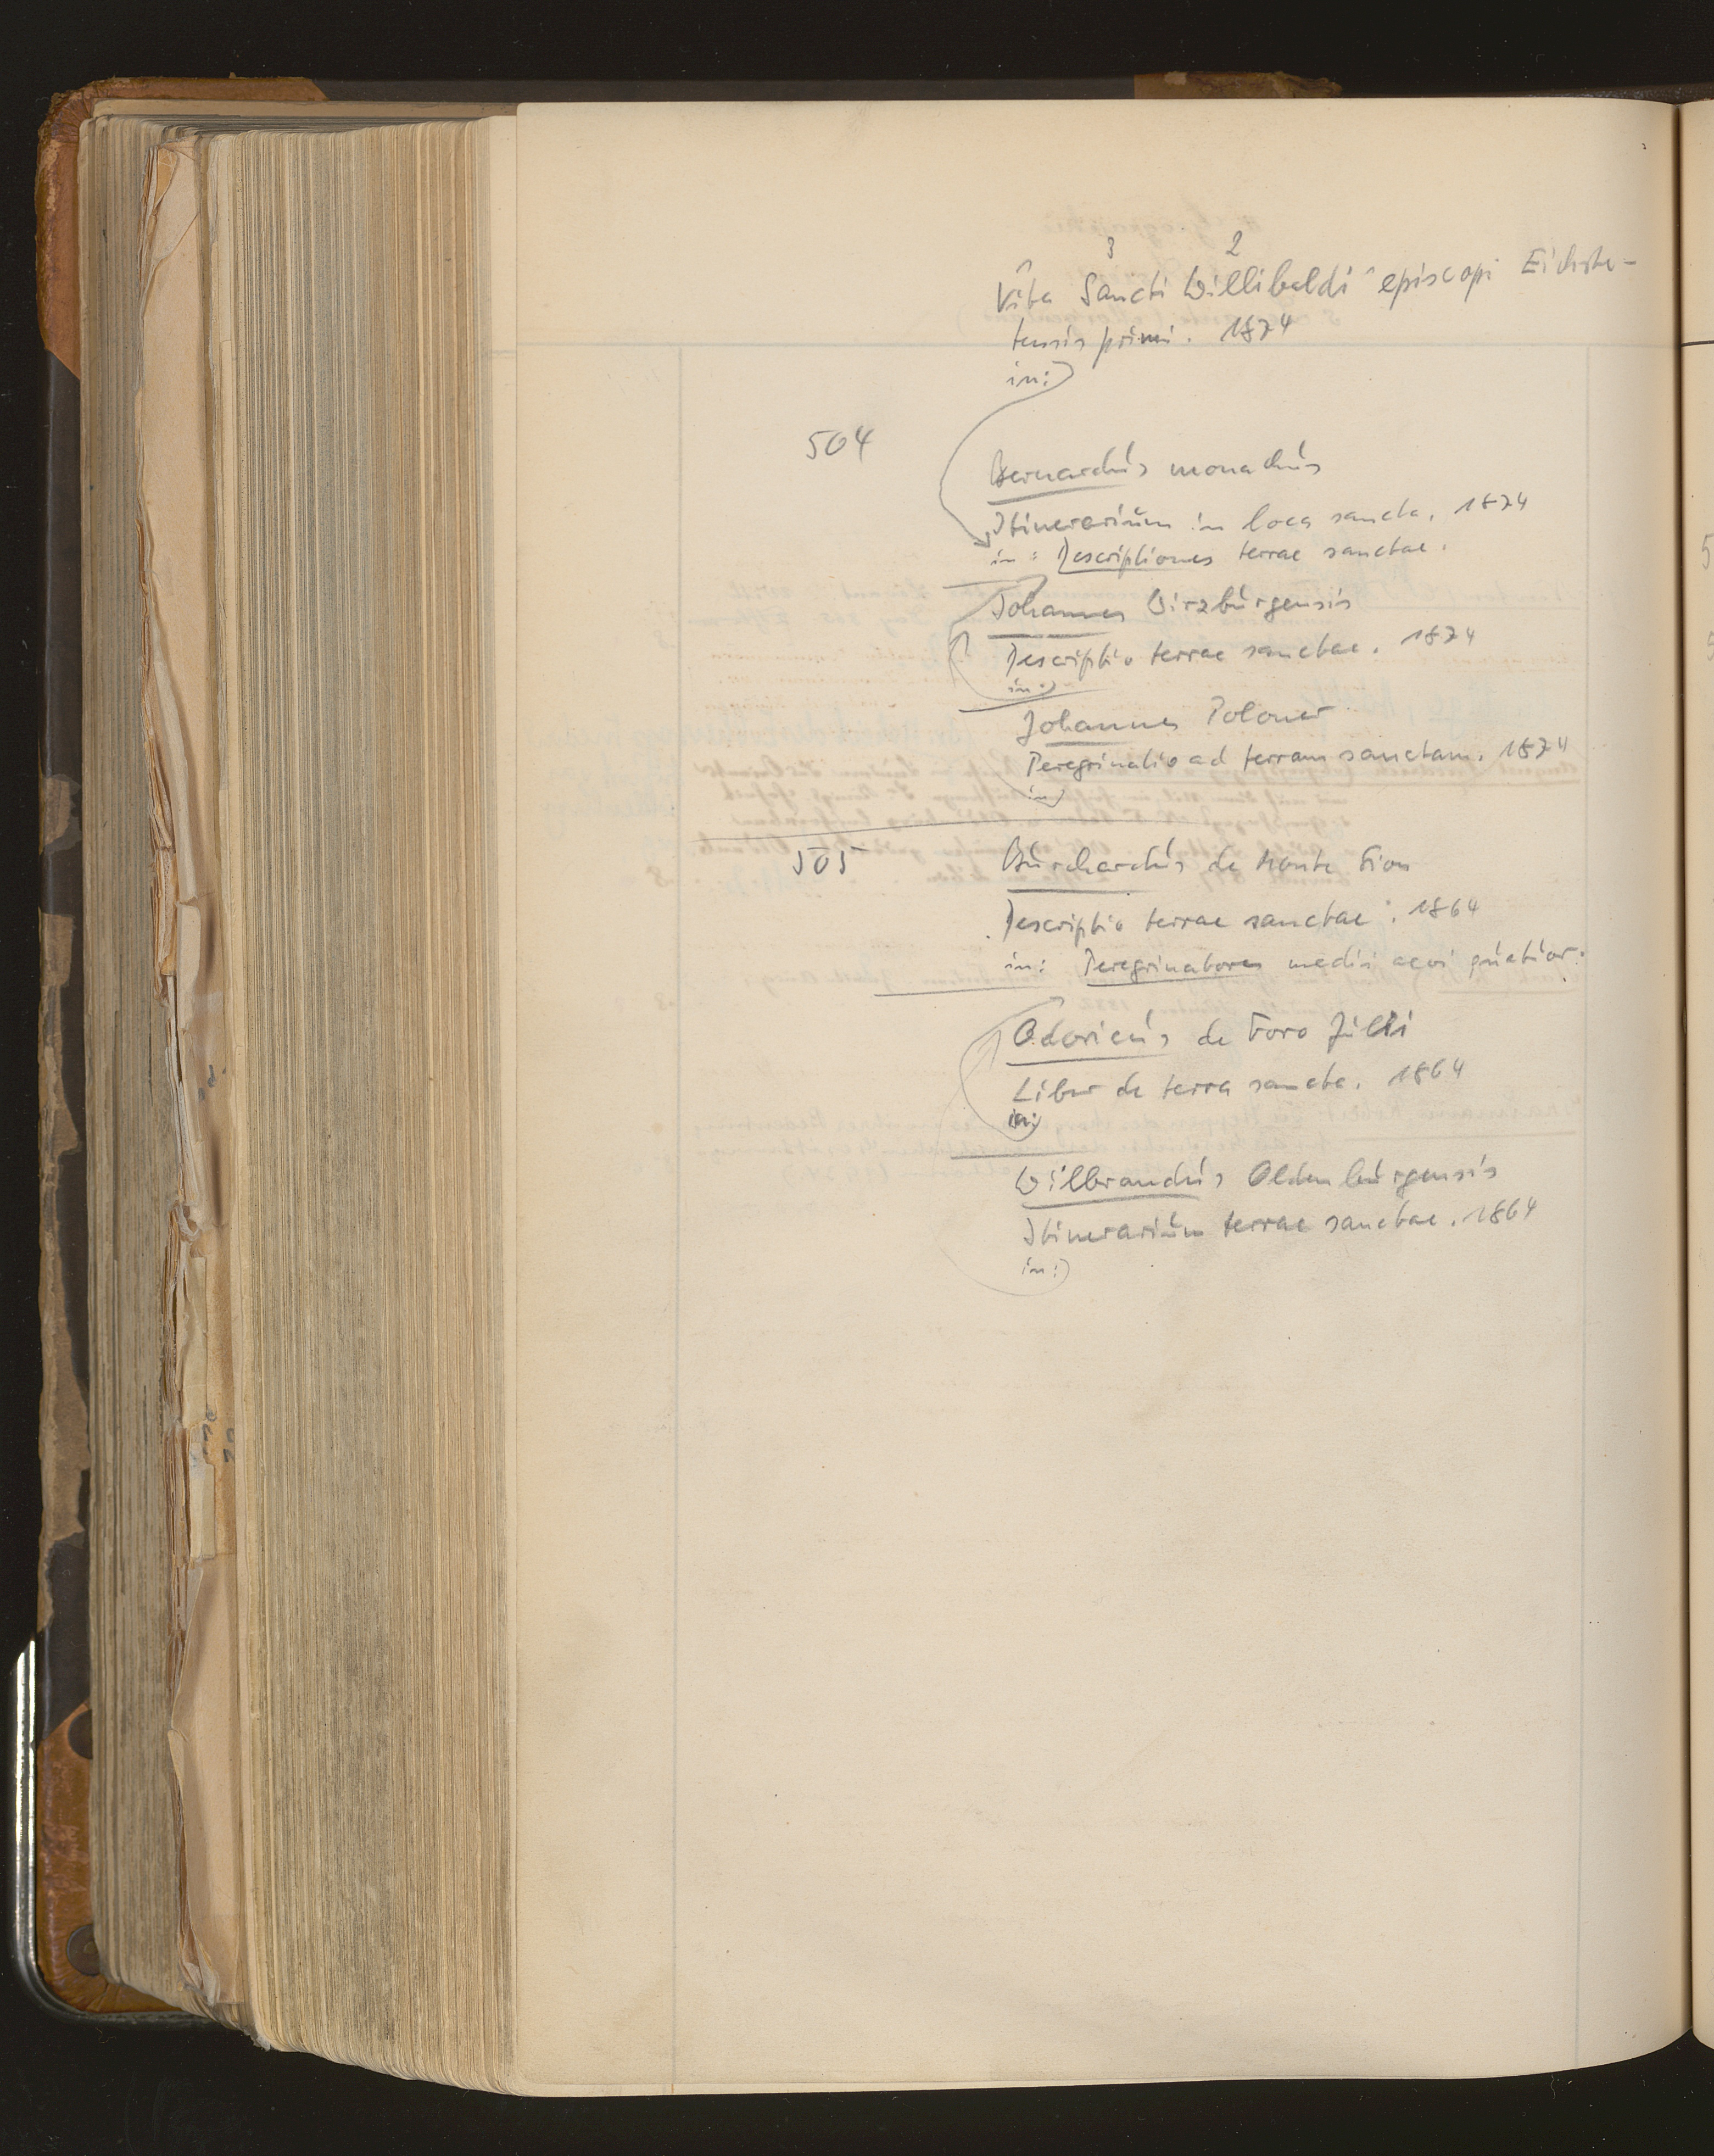 3 2
Vita Sancti Willibaldi episcopi Eichste-
tensis primi. 1874
in:
504
Bernardus monachus
Itinerarium in loca sancta. 1874
in: Descriptiones terrae sanctae.
Johannes Wirzburgensis
Descriptio terrae sanctae. 1874
in:
Johannes Poloner
Peregrinatio ad terram sanctam. 1874
in:
505
Burchardus de Monte Sion
Descriptio terrae sanctae. 1864
in: Peregrinatores medii aevi quatuor.
Odoricus de Foro Julii
Liber de terra sancta. 1864
in:
Wilbrandus Oldenburgensis
Itinerarium terrae sanctae. 1864
in: